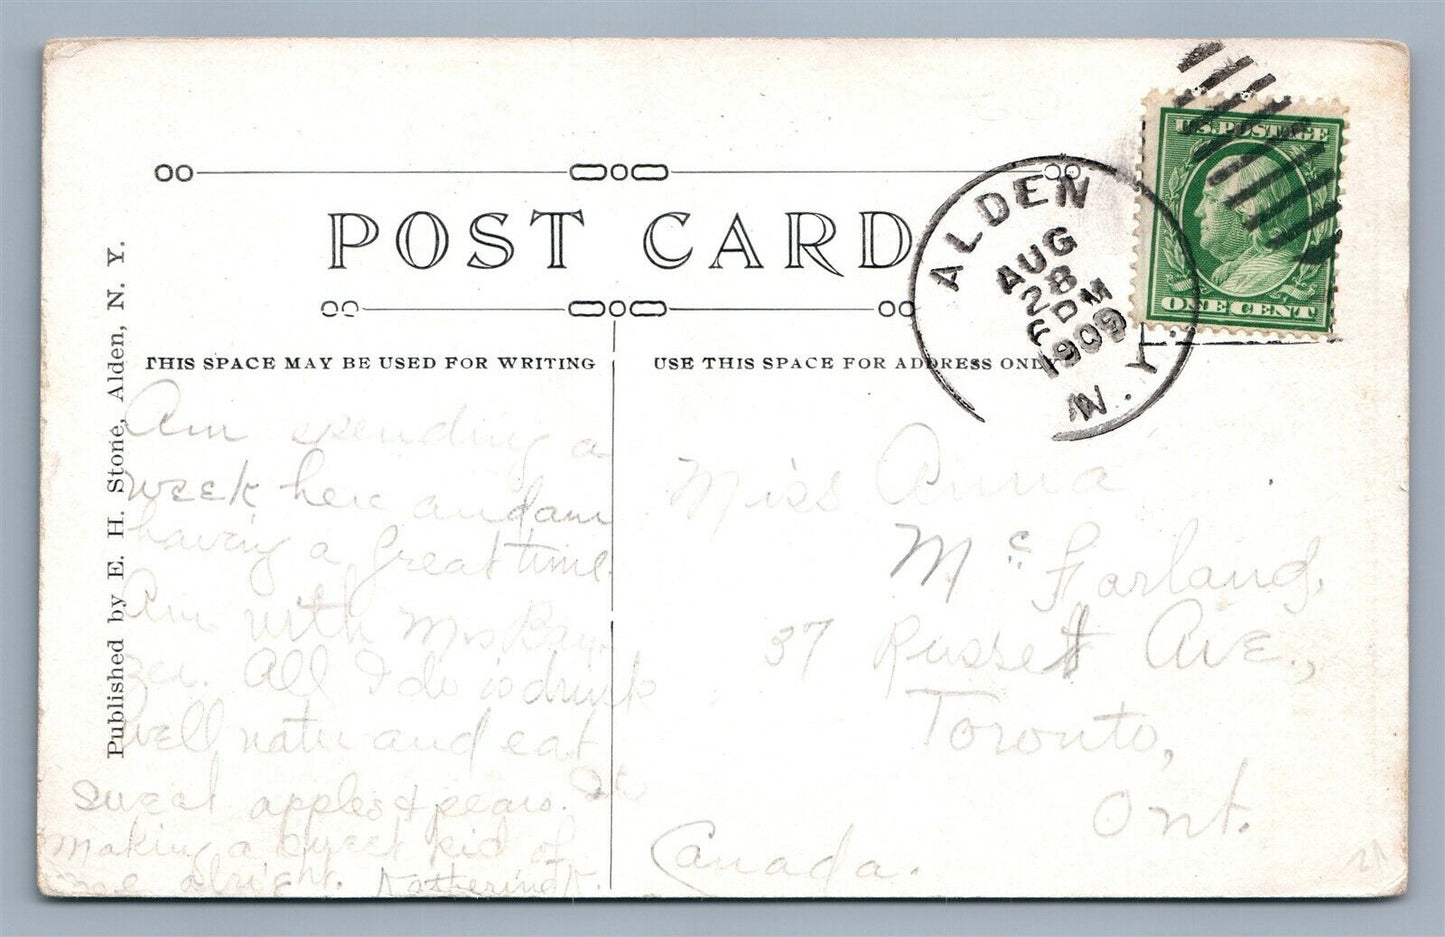 POST CARD
THIS SPACE MAY BE USED FOR WRITING
USE THIS SPACE FOR ADDRESS ONLY
Published by E. H. Stone, Alden, N. Y.
ALDEN
AUG
28
6 PM
1909
N. Y.
U.S. POSTAGE
ONE CENT
Am spending a
week here and am
having a great time.
Am with Mrs
All I do is drink
well water and eat
sweet apples & pears. It's
making a sweet kid of
me alright. Katherine K.
Miss Anna
McFarland,
37 Russett Ave.,
Toronto,
Ont.
Canada.
21